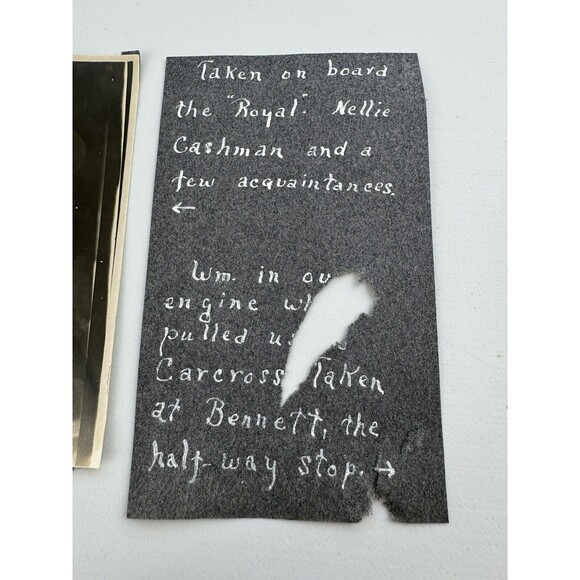 Taken on board
the "Royal". Nellie
Cashman and a
few acquaintances.
←
Wm. in
engine
pulled
Carcross. Taken
at Bennett, the
half-way stop. →